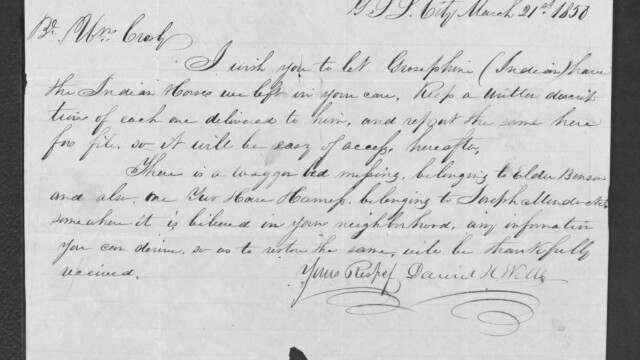 G. S. L. City March 21st 1850
Br. Wm Crosby
I wish you to let Grosephine (Indian) have
the Indian Horses we left in your care. Keep a written descrip
tion of each one delivered to him, and report the same here
for file, so it will be easy of access hereafter,
There is a waggon bed missing, belonging to Elder Benson
and also, one Two Horse Harness belonging to Joseph
somewhere it is believed in your neighborhood, any information
you can derive, so as to restore the same, will be thankfully
received.
Yours Respey Daniel H Wells